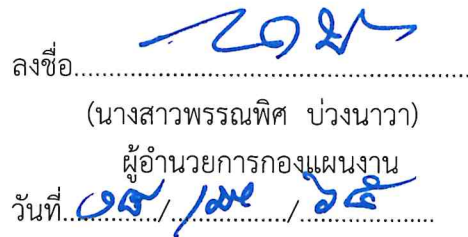 ลงชื่อ
(นางสาวพรรณพิศ บ่วงนาวา)
ผู้อำนวยการกองแผนงาน
วันที่ ๑๘ / เมย / ๖๕